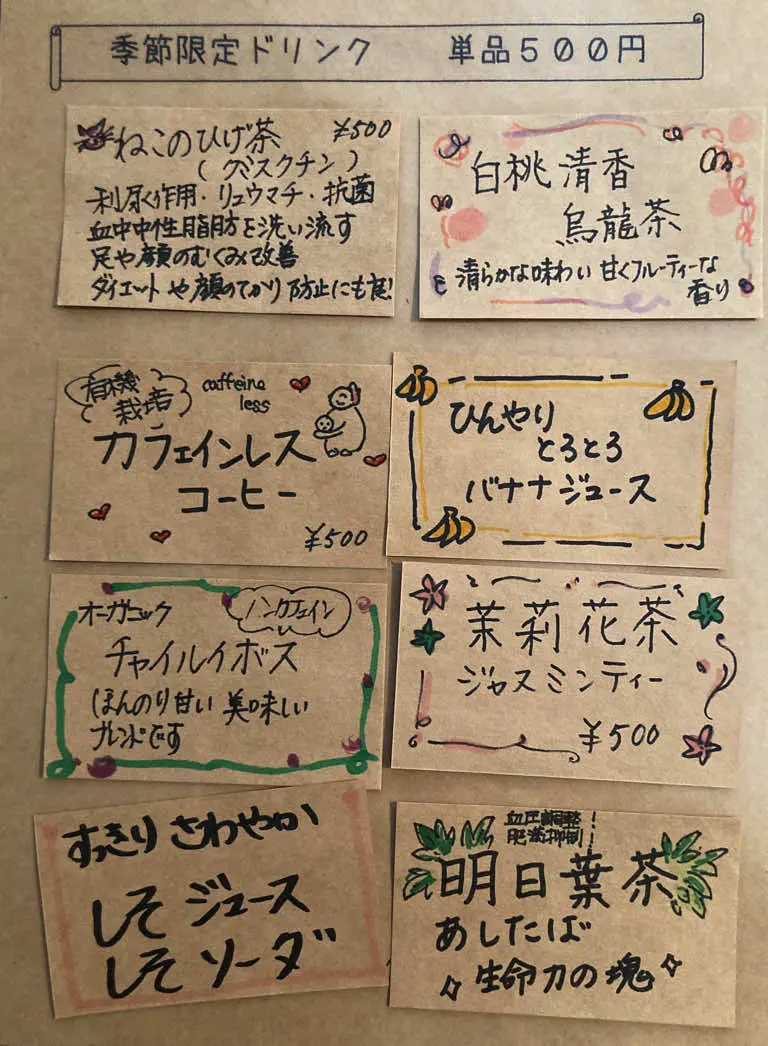 季節限定ドリンク　単品５００円
ねこのひげ茶 ¥500
(クミスクチン)
利尿作用・リュウマチ・抗菌
血中中性脂肪を洗い流す
足や顔のむくみ改善
ダイエットや顔のてかり防止にも度!
白桃清香
烏龍茶
清らかな味わい 甘くフルーティーな
香り
有機
栽培
caffeine
less
カフェインレス
コーヒー
¥500
ひんやり
とろとろ
バナナジュース
オーガニック
ノンカフェイン
チャイルイボス
ほんのり甘い 美味しい
ブレンドです
茉莉花茶
ジャスミンティー
¥500
すっきり さわやか
しそジュース
しそソーダ
血圧調整!
肥満抑制!
明日葉茶
あしたば
生命力の塊